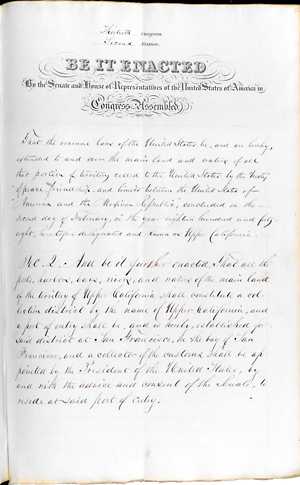 Thirtieth Congress.
Second Session.
BE IT ENACTED
By the Senate and House of Representatives of the United States of America in
Congress Assembled
That the revenue laws of the United States be, and are hereby,
extended to and over the main land and waters of all
that portion of territory ceded to the United States by the "treaty
of peace, friendship, and limits between the United States of
America and the Mexican Republic," concluded on the
second day of February, in the year eighteen hundred and forty-
eight, heretofore designated and known as Upper California.
Sec. 2. And be it further enacted, That all the
ports, harbors, bays, rivers, and waters of the main land
of the territory of Upper California shall constitute a col-
lection district by the name of Upper California, and
a port of entry shall be, and is hereby, established for
said district at San Francisco, in the bay of San
Francisco, and a collector of the customs shall be ap-
pointed by the President of the United States, by
and with the advice and consent of the Senate, to
reside at said port of entry.